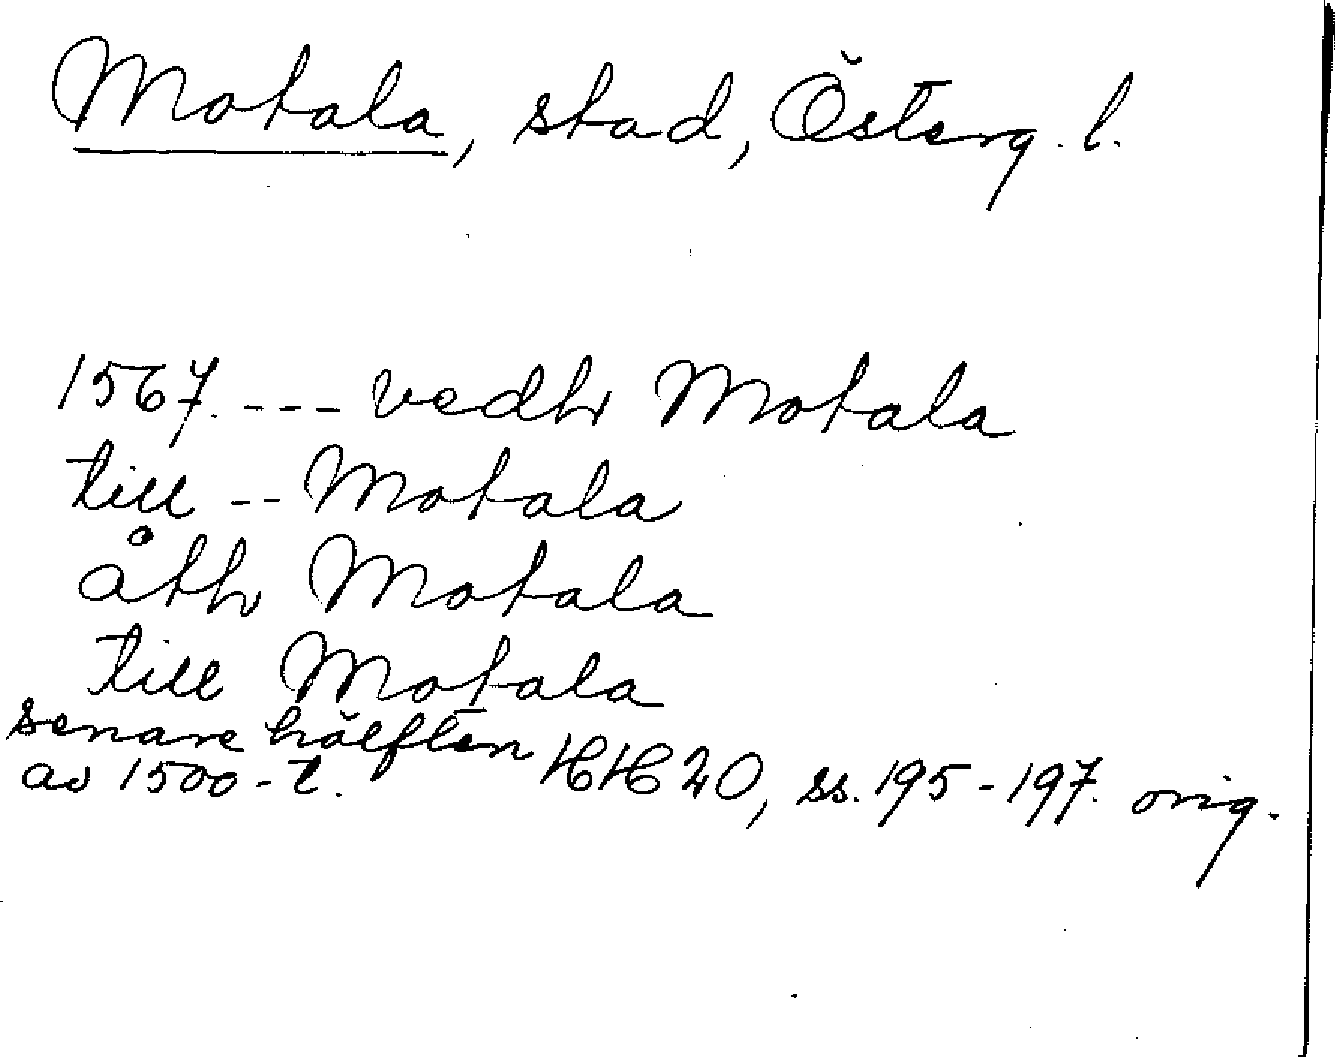 Motala, stad, Österg. l.
1567. --- vedh Motala
till -- Motala
åth Motala
till Motala
senare hälften
av 1500-t. HH 20, ss. 195-197. orig.